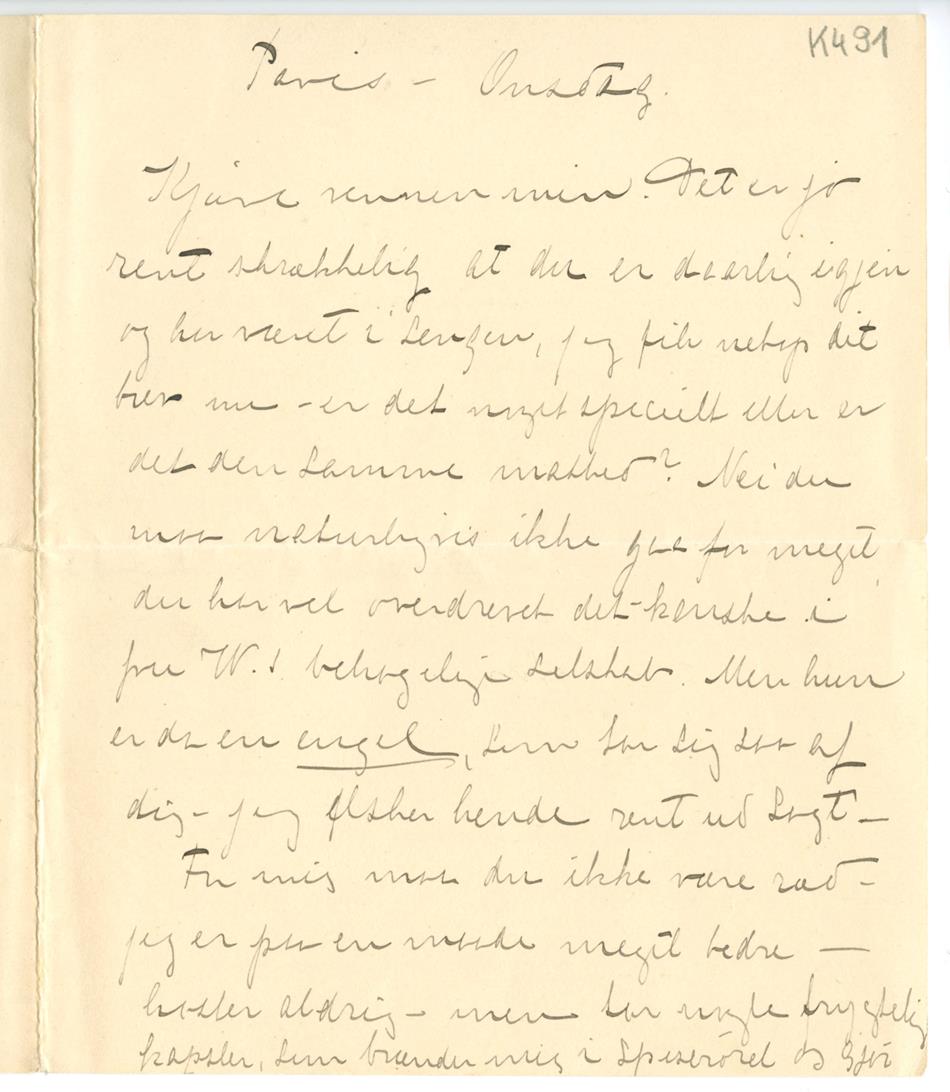 K491
Paris – Onsdag.
Kjære vennen min! Det er jo
rent skrækkelig at du er daarlig igjen
og har været i sengen, jeg fik netop dit
brev nu – er det noget specielt eller er
det den samme mathed? Nei du
maa naturligvis ikke gaa for meget
du har vel overdrevet det – kanske i
fru W.s behagelige selskab. Men hun
er da en engel, som tar sig saa af
dig – jeg elsker hende rent ud sagt –
For mig maa du ikke være ræd –
jeg er paa en maade meget bedre –
hoster aldrig – men tar nogle frygtelig
kapsler, som brænder mig i spiserøret og gjør